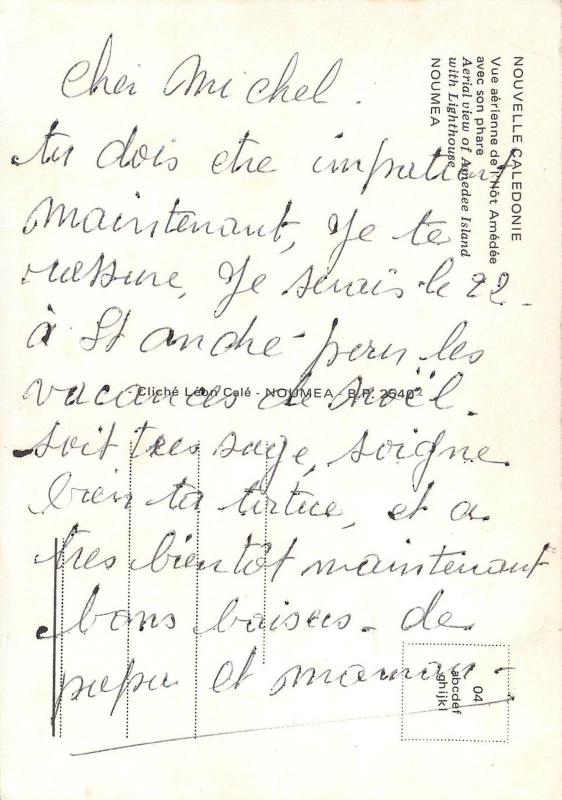 Cher Michel.
tu dois etre impatient
maintenant, Je te
rassure, Je serais le 22
à St andré pour les
vacances de Noël.
soit tres sage, soigne
bien ta tortue, et a
tres bientôt maintenant
bons baisers de
papa et maman
NOUVELLE CALEDONIE
Vue aérienne de l'Ilôt Amédée
avec son phare
Aerial view of Amedee Island
with Lighthouse
NOUMEA
- Cliché Léon Calé - NOUMEA - B.P. 2540
04
abcdef
ghijkl